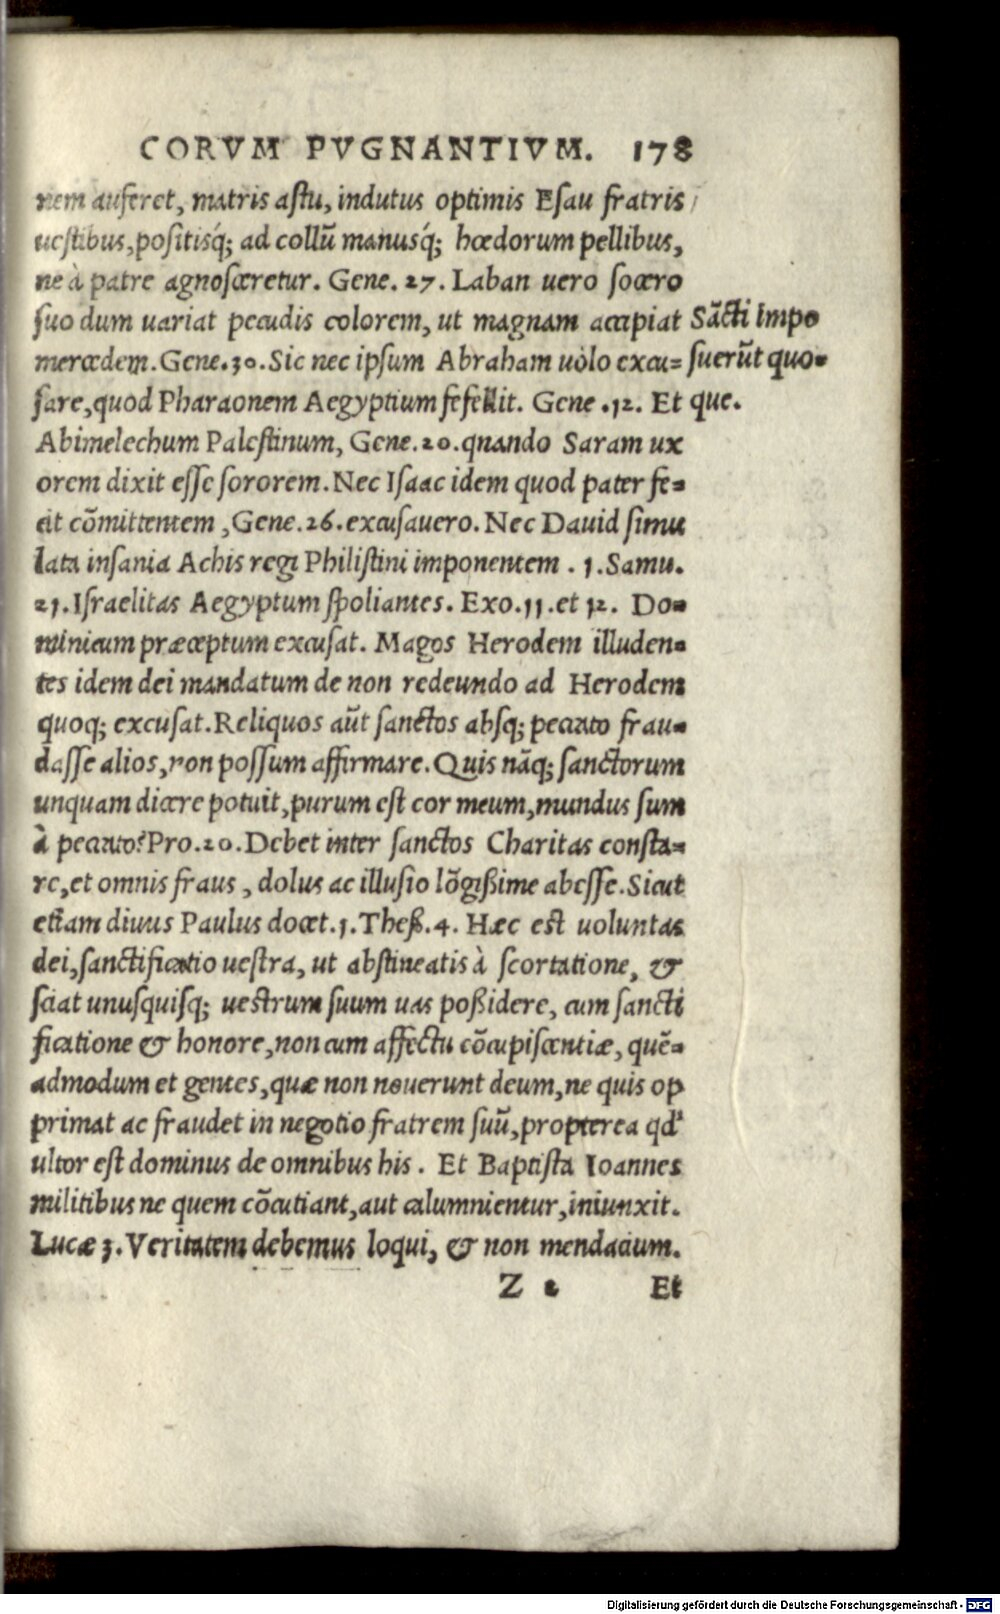 CORVM PVGNANTIVM. 178
nem auferet, matris astu, indutus optimis Esau fratris
uestibus, positisq́; ad collũ manusq́; hœdorum pellibus,
ne à patre agnosceretur. Gene. 27. Laban uero socero
suo dum uariat pecudis colorem, ut magnam accipiat
mercedem. Gene. 30. Sic nec ipsum Abraham uolo excu=
sare, quod Pharaonem Aegyptium fefellit. Gene. 12. Et
Abimelechum Palestinum, Gene. 20. quando Saram ux
orem dixit esse sororem. Nec Isaac idem quod pater fe=
cit cõmittentem, Gene. 26. excusauero. Nec Dauid simu
lata insania Achis regi Philistini imponentem. 1. Samu.
21. Israelitas Aegyptum spoliantes. Exo. 11. et 12. Do=
minicum præceptum excusat. Magos Herodem illuden=
tes idem dei mandatum de non redeundo ad Herodem
quoq; excusat. Reliquos aũt sanctos absq; peccato frau=
dasse alios, non possum affirmare. Quis nãq; sanctorum
unquam dicere potuit, purum est cor meum, mundus sum
à peccato? Pro. 20. Debet inter sanctos Charitas consta=
re, et omnis fraus, dolus ac illusio lõgißime abesse. Sicut
etiam diuus Paulus docet. 1. Theß. 4. Hæc est uoluntas
dei, sanctificatio uestra, ut abstineatis à scortatione, &
sciat unusquisq; uestrum suum uas poßidere, cum sancti
ficatione & honore, non cum affectu cõcupiscentiæ, quẽ=
admodum et gentes, quæ non nouerunt deum, ne quis op
primat ac fraudet in negotio fratrem suũ, propterea qd'
ultor est dominus de omnibus his. Et Baptista Ioannes
militibus ne quem cõcutiant, aut calumnientur, iniunxit.
Lucæ 3. Veritatem debemus loqui, & non mendacium.
Z 2 Et
Sãcti impo
suerũt quo=
que.
Digitalisierung gefördert durch die Deutsche Forschungsgemeinschaft - DFG